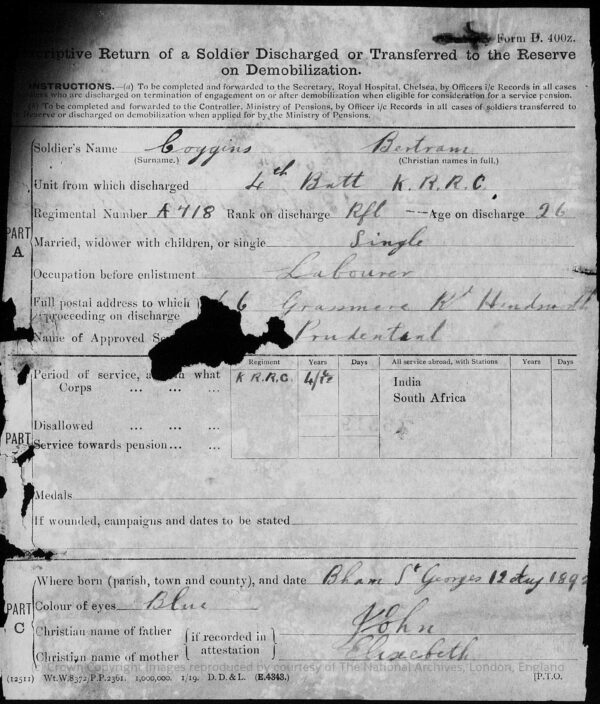 Form D. 400z.
criptive Return of a Soldier Discharged or Transferred to the Reserve
on Demobilization.
INSTRUCTIONS.—(a) To be completed and forwarded to the Secretary, Royal Hospital, Chelsea, by Officers i/c Records in all cases
who are discharged on termination of engagement on or after demobilization when eligible for consideration for a service pension.
(b) To be completed and forwarded to the Controller, Ministry of Pensions, by Officer i/c Records in all cases of soldiers transferred to
Reserve or discharged on demobilization when applied for by the Ministry of Pensions.
PART A
Soldier's Name Coggins Bertram
(Surname.) (Christian names in full.)
Unit from which discharged 4th Batt K.R.R.C.
Regimental Number A718 Rank on discharge Rfl Age on discharge 26
Married, widower with children, or single Single
Occupation before enlistment Labourer
Full postal address to which 6 Grasmere Rd Handsworth
proceeding on discharge
Name of Approved Prudential
PART
Regiment Years Days All service abroad, with Stations Years Days
Period of service, what K.R.R.C. India
Corps ... ... ... South Africa
Disallowed ... ... ...
Service towards pension... ...
Medals
If wounded, campaigns and dates to be stated
PART C
Where born (parish, town and county), and date Bham St Georges 12 189
Colour of eyes Blue
Christian name of father (if recorded in John
Christian name of mother attestation) Elizabeth
Crown Copyright Images reproduced by courtesy of The National Archives, London, England
(12511) Wt.W.8372/P.P.2361. 1,000,000. 1/19. D.D.&L. (E.4343.) [P.T.O.